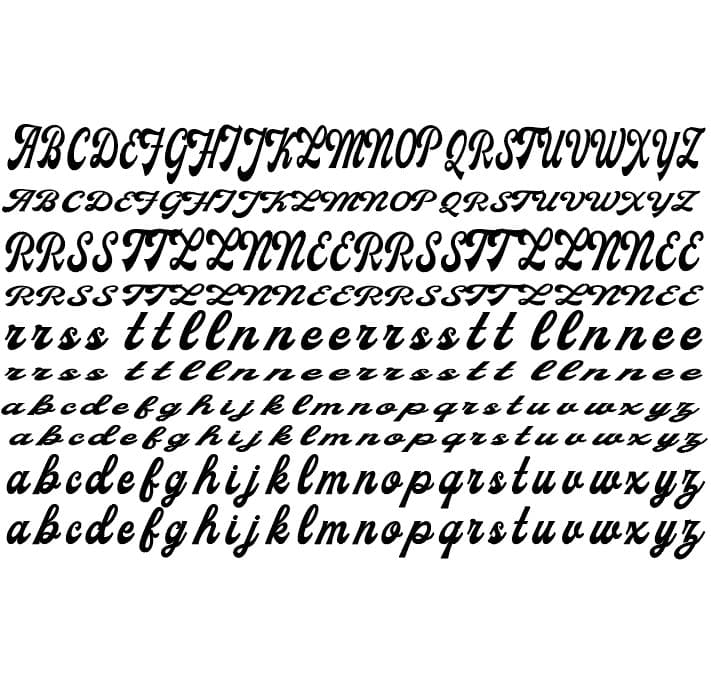 ABCDEFGHIJKLMNOP QRSTUVWXYZ
ABCDEFGHIJKLMNOP QRSTUVWXYZ
RRSSTTLLNNEERRSSTTLLNNEE
RRSSTTLLNNEERRSSTTLLNNEE
rrss ttllnneerrsstt llnnee
rrss ttllnneerrsstt llnnee
abcdefghijklmnopqrstuvwxyz
abcdefghijklmnopqrstuvwxyz
abcdefghijklmnopqrstuvwxyz
abcdefghijklmnopqrstuvwxyz